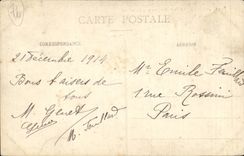 CARTE POSTALE
CORRESPONDANCE
ADRESSE
21 Décembre 1914
Bons baisers de
tous
M. Genet
Mr Emile
1 rue Rossini
Paris